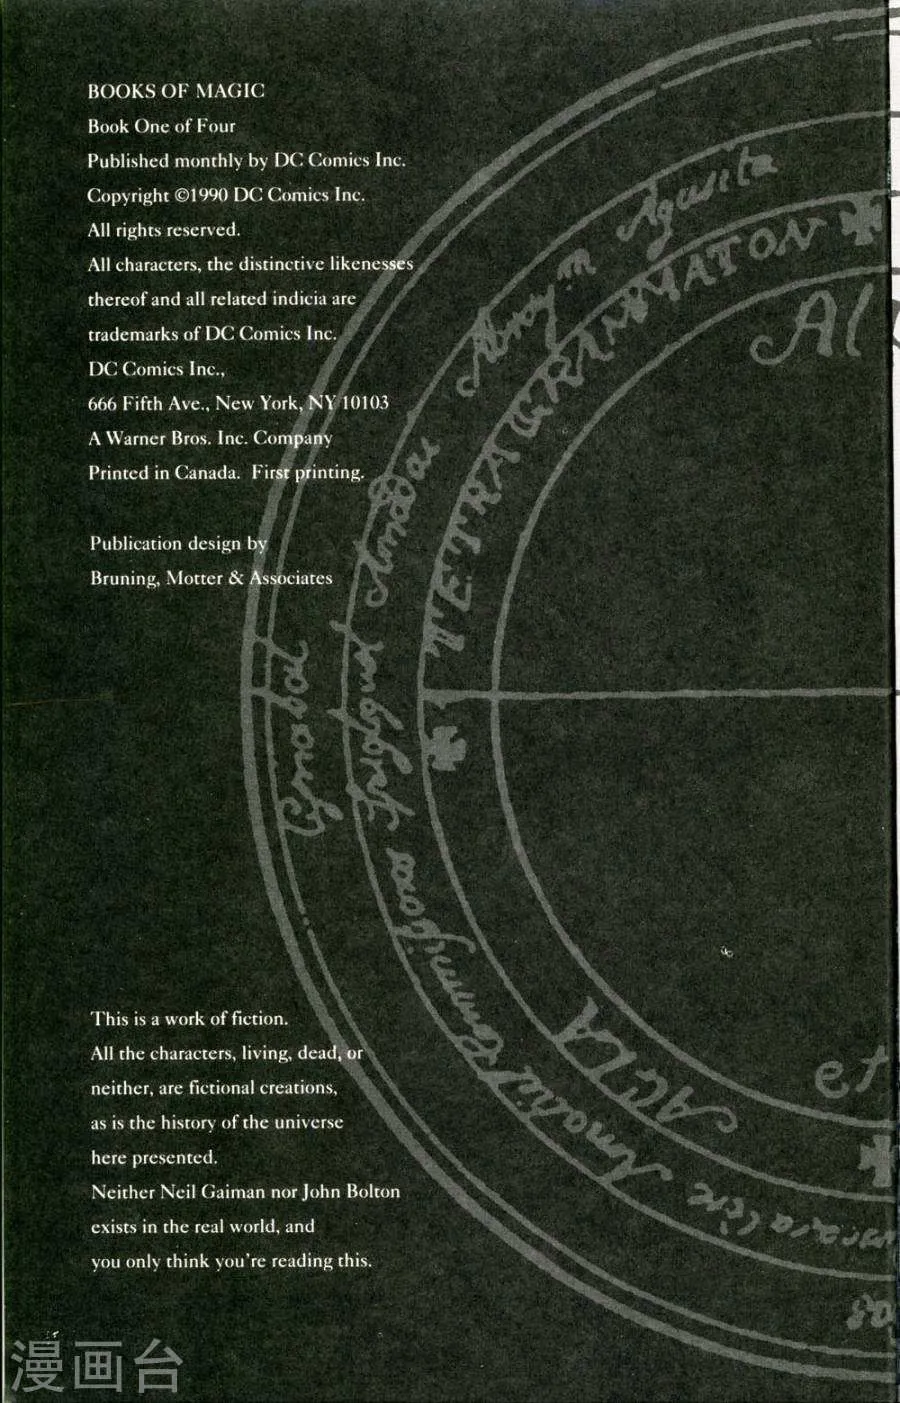 BOOKS OF MAGIC
Book One of Four
Published monthly by DC Comics Inc.
Copyright ©1990 DC Comics Inc.
All rights reserved.
All characters, the distinctive likenesses
thereof and all related indicia are
trademarks of DC Comics Inc.
DC Comics Inc.,
666 Fifth Ave., New York, NY 10103
A Warner Bros. Inc. Company
Printed in Canada.  First printing.
Publication design by
Bruning, Motter & Associates
This is a work of fiction.
All the characters, living, dead, or
neither, are fictional creations,
as is the history of the universe
here presented.
Neither Neil Gaiman nor John Bolton
exists in the real world, and
you only think you're reading this.
TETRAGRAMMATON
Al
漫画台